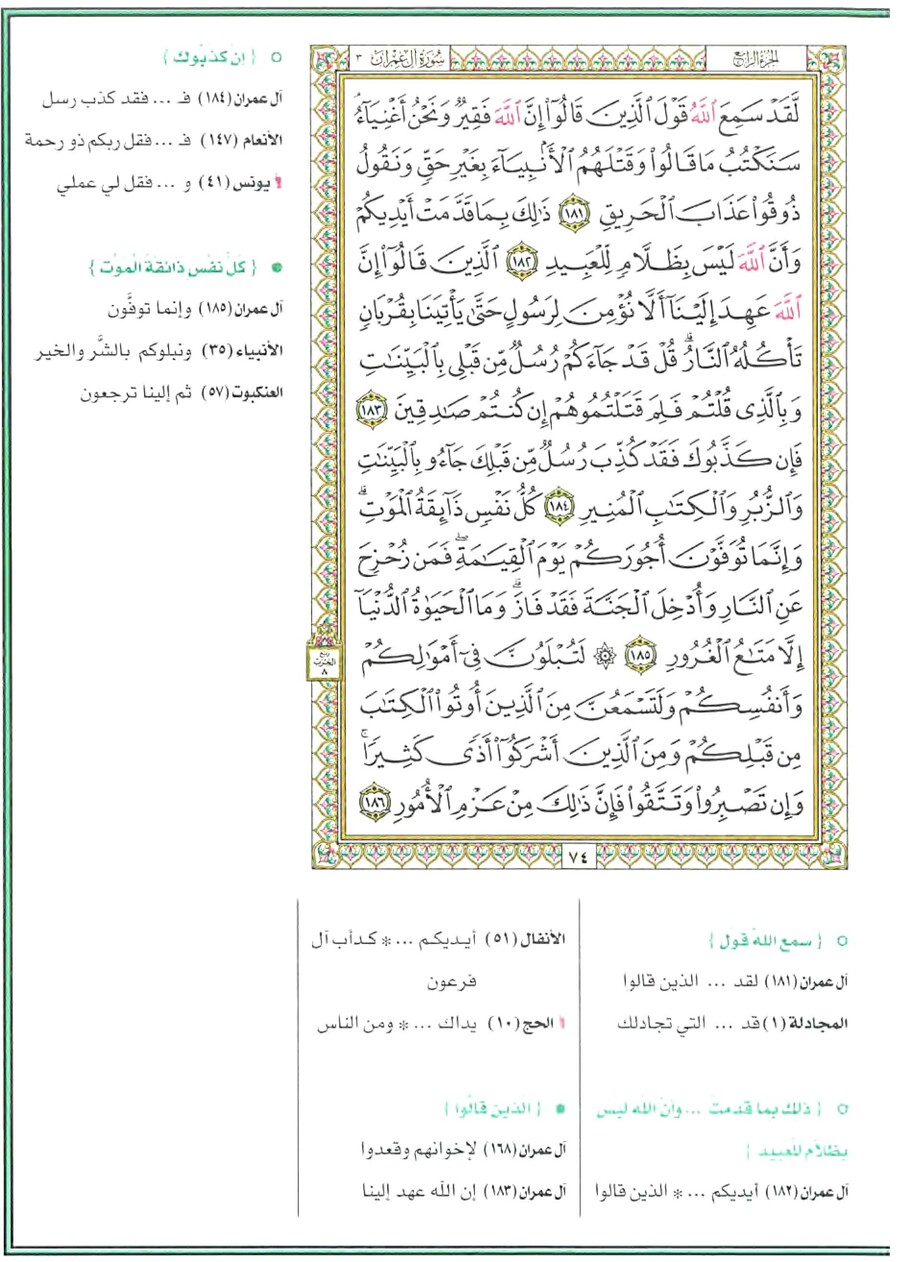 الجزء الرابع
سورة آل عمران ٣
لَّقَدْ سَمِعَ ٱللَّهُ قَوْلَ ٱلَّذِينَ قَالُوٓا۟ إِنَّ ٱللَّهَ فَقِيرٌ وَنَحْنُ أَغْنِيَآءُ
سَنَكْتُبُ مَا قَالُوا۟ وَقَتْلَهُمُ ٱلْأَنۢبِيَآءَ بِغَيْرِ حَقٍّ وَنَقُولُ
ذُوقُوا۟ عَذَابَ ٱلْحَرِيقِ ١٨١ ذَٰلِكَ بِمَا قَدَّمَتْ أَيْدِيكُمْ
وَأَنَّ ٱللَّهَ لَيْسَ بِظَلَّامٍ لِّلْعَبِيدِ ١٨٢ ٱلَّذِينَ قَالُوٓا۟ إِنَّ
ٱللَّهَ عَهِدَ إِلَيْنَآ أَلَّا نُؤْمِنَ لِرَسُولٍ حَتَّىٰ يَأْتِيَنَا بِقُرْبَانٍ
تَأْكُلُهُ ٱلنَّارُ ۗ قُلْ قَدْ جَآءَكُمْ رُسُلٌ مِّن قَبْلِى بِٱلْبَيِّنَٰتِ
وَبِٱلَّذِى قُلْتُمْ فَلِمَ قَتَلْتُمُوهُمْ إِن كُنتُمْ صَٰدِقِينَ ١٨٣
فَإِن كَذَّبُوكَ فَقَدْ كُذِّبَ رُسُلٌ مِّن قَبْلِكَ جَآءُو بِٱلْبَيِّنَٰتِ
وَٱلزُّبُرِ وَٱلْكِتَٰبِ ٱلْمُنِيرِ ١٨٤ كُلُّ نَفْسٍ ذَآئِقَةُ ٱلْمَوْتِ ۗ
وَإِنَّمَا تُوَفَّوْنَ أُجُورَكُمْ يَوْمَ ٱلْقِيَٰمَةِ ۖ فَمَن زُحْزِحَ
عَنِ ٱلنَّارِ وَأُدْخِلَ ٱلْجَنَّةَ فَقَدْ فَازَ ۗ وَمَا ٱلْحَيَوٰةُ ٱلدُّنْيَآ
إِلَّا مَتَٰعُ ٱلْغُرُورِ ١٨٥ ۞ لَتُبْلَوُنَّ فِىٓ أَمْوَٰلِكُمْ
وَأَنفُسِكُمْ وَلَتَسْمَعُنَّ مِنَ ٱلَّذِينَ أُوتُوا۟ ٱلْكِتَٰبَ
مِن قَبْلِكُمْ وَمِنَ ٱلَّذِينَ أَشْرَكُوٓا۟ أَذًى كَثِيرًا ۚ
وَإِن تَصْبِرُوا۟ وَتَتَّقُوا۟ فَإِنَّ ذَٰلِكَ مِنْ عَزْمِ ٱلْأُمُورِ ١٨٦
ربع
الحزب
٨
٧٤
{ إن كذبوك }
آل عمران (١٨٤) فـ ... فقد كذب رسل
الأنعام (١٤٧) فـ ... فقل ربكم ذو رحمة
يونس (٤١) و ... فقل لي عملي
{ كل نفس ذائقة الموت }
آل عمران (١٨٥) وإنما توفَّون
الأنبياء (٣٥) ونبلوكم بالشَّر والخير
العنكبوت (٥٧) ثم إلينا ترجعون
{ سمع الله قول }
آل عمران (١٨١) لقد ... الذين قالوا
المجادلة (١) قد ... التي تجادلك
{ ذلك بما قدمت ... وأن الله ليس
بظلام للعبيد }
آل عمران (١٨٢) أيديكم ... * الذين قالوا
الأنفال (٥١) أيديكم ... * كدأب آل
فرعون
الحج (١٠) يداك ... * ومن الناس
{ الذين قالوا }
آل عمران (١٦٨) لإخوانهم وقعدوا
آل عمران (١٨٣) إن الله عهد إلينا